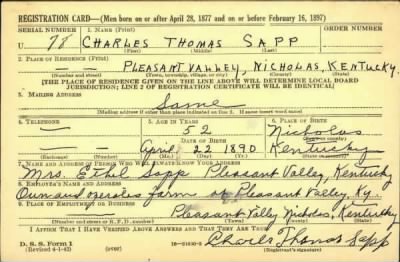 REGISTRATION CARD—(Men born on or after April 28, 1877 and on or before February 16, 1897)
SERIAL NUMBER 1. NAME (Print)
U 78 CHARLES THOMAS SAPP
(First) (Middle) (Last)
2. PLACE OF RESIDENCE (Print)
— PLEASANT VALLEY, NICHOLAS, KENTUCKY.
(Number and street) (Town, township, village, or city) (County) (State)
[THE PLACE OF RESIDENCE GIVEN ON THE LINE ABOVE WILL DETERMINE LOCAL BOARD
JURISDICTION; LINE 2 OF REGISTRATION CERTIFICATE WILL BE IDENTICAL]
3. MAILING ADDRESS
Same
[Mailing address if other than place indicated on line 2. If same insert word same]
4. TELEPHONE 5. AGE IN YEARS 6. PLACE OF BIRTH
— 52 Nicholas
DATE OF BIRTH (Town or county)
— April 22 1890 Kentucky
(Exchange) (Number) (Mo.) (Day) (Yr.) (State or country)
7. NAME AND ADDRESS OF PERSON WHO WILL ALWAYS KNOW YOUR ADDRESS
Mrs. Ethel Sapp Pleasant Valley, Kentucky
8. EMPLOYER'S NAME AND ADDRESS
Own and operates farm of Pleasant Valley, Ky.
9. PLACE OF EMPLOYMENT OR BUSINESS
— Pleasant Valley Nicholas, Kentucky
(Number and street or R. F. D. number) (Town) (County) (State)
I AFFIRM THAT I HAVE VERIFIED ABOVE ANSWERS AND THAT THEY ARE TRUE.
D. S. S. Form 1
(Revised 4-1-42) (over) Charles Thomas Sapp
(Registrant's signature)